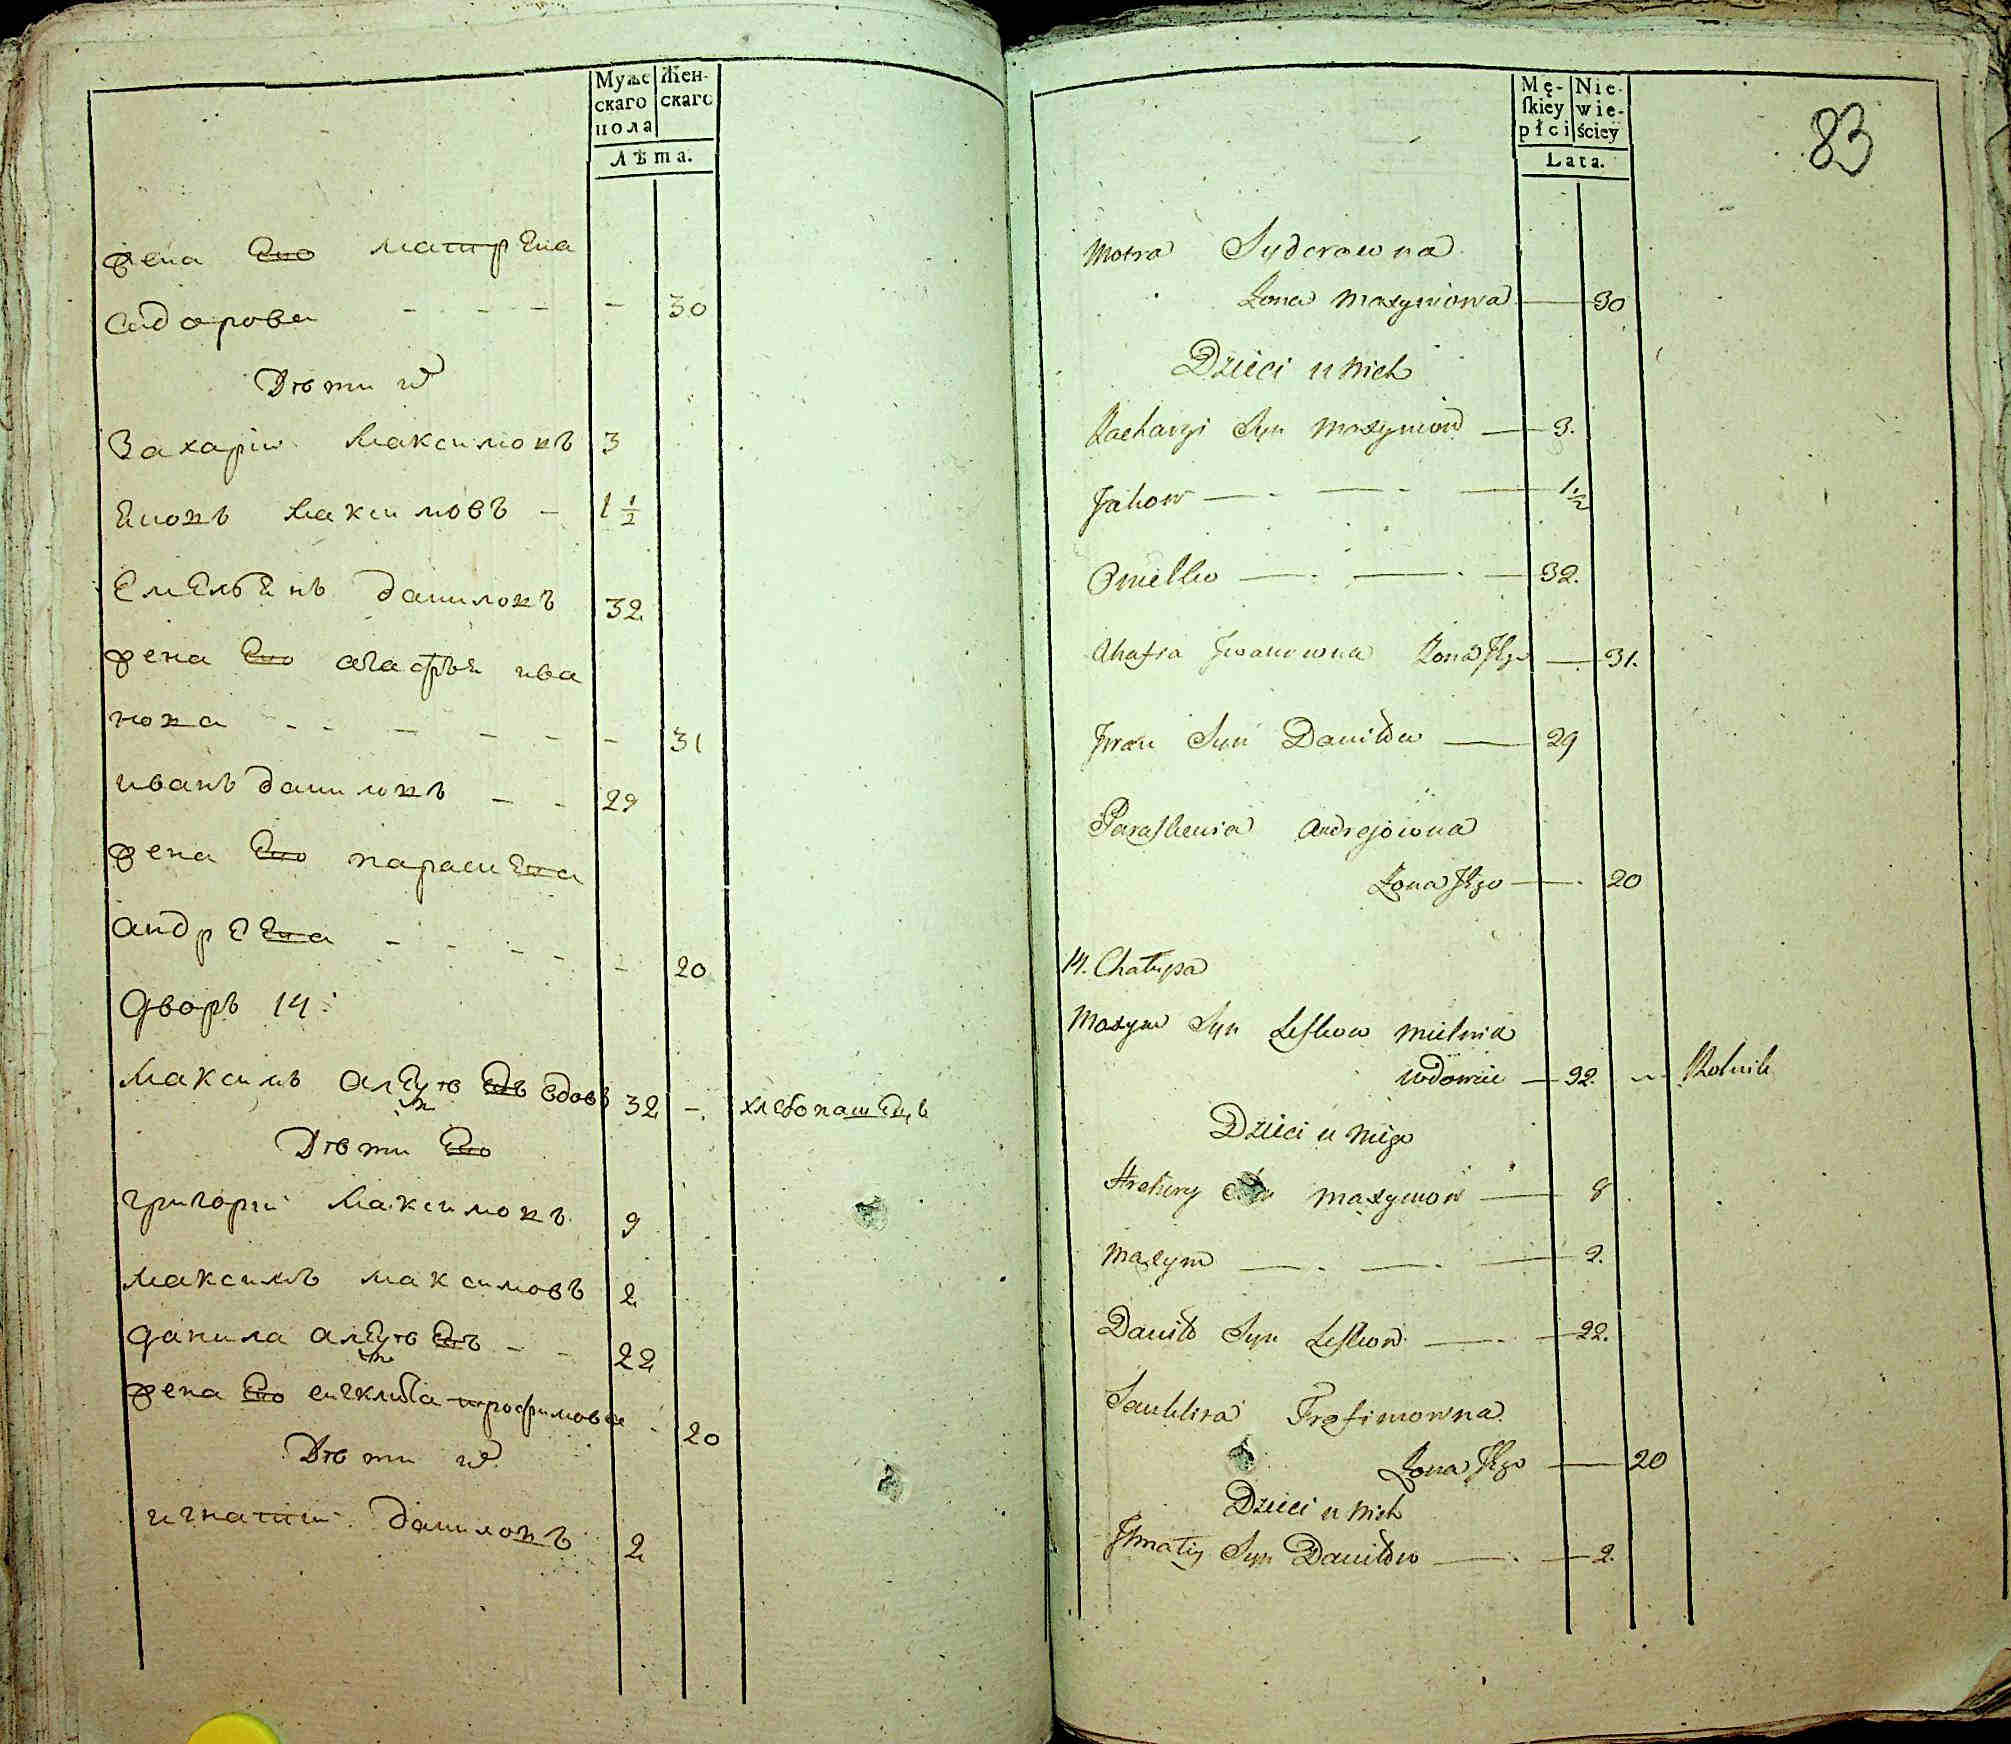 Муже Жен-
скаго скаго
пола
Лѣта.
жена Ево матрена
сидорова - - - - 30
Дѣти ихъ
Захарий Максимовъ 3
Яковъ Максимовъ - 1 1/2
Емельянъ даниловъ 32
жена Ево агафья ива
нова - - - - - - 31
иванъ даниловъ - - 29
жена Ево парасЕва
андреева - - - - - 20
Дворъ 14:
Максимъ вдовъ 32 - хлебопашецъ
Дѣти Ево
григорий Максимовъ 9
максимъ максимовъ 2
данила - - 22
жена Ево трофимова 20
Дѣти ихъ
игнатий даниловъ 2
Mę- Nie-
ſkiey wie-
płci ściey
Lata.
83
Motra Syderowna
Zona Maxymowa — 30
Dzieci u nich
Zacharyi Syn Maxymow — 3.
Jakow — . — . — 1 1/2
Omelko — . — . — 32.
Ahafia Jwanowna Zona Jego — 31.
Jwan Syn Daniłow — 29
Paraskewia Andrejowna
Zona Jego — . 20
14. Chałupa
Maxym Syn Leskow
wdowiec — 32. — Rolnik
Dzieci u niego
Hrehory Syn Maxymow — 8
Maxym — . — . — 2.
Daniło Syn Leskow — . — 22.
Sauklita Trofimowna
Zona Jego — 20
Dzieci u nich
Jhnatiy Syn Daniłow — . — 2.